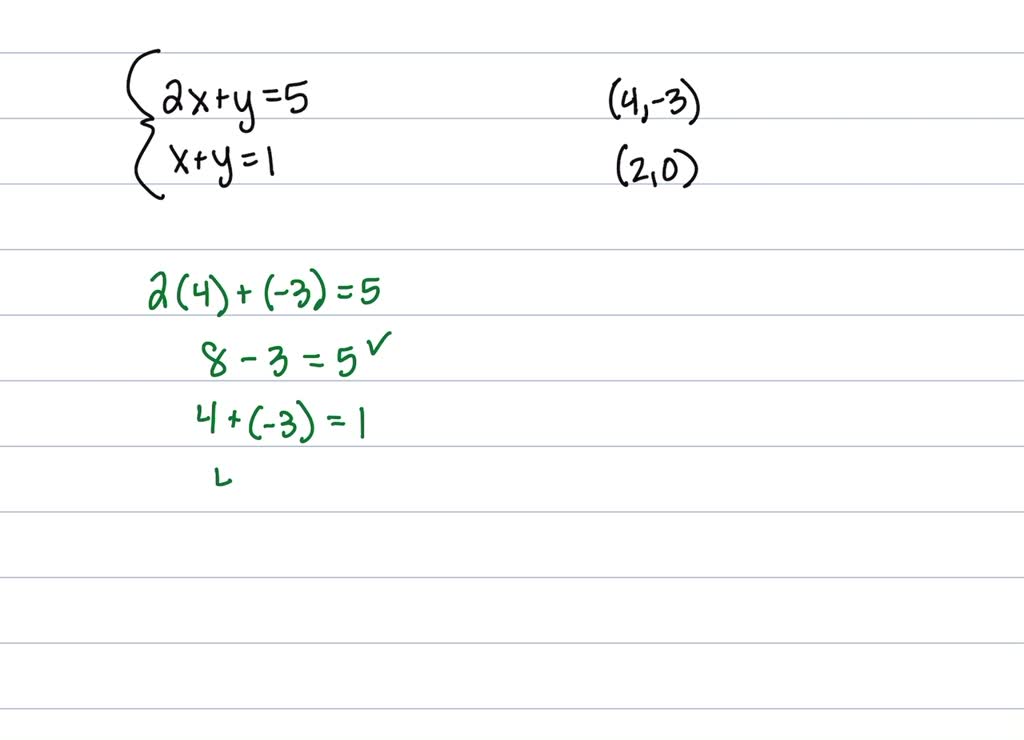 2x+y=5
x+y=1
(4,-3)
(2,0)
2(4)+(-3)=5
8-3=5✓
4+(-3)=1